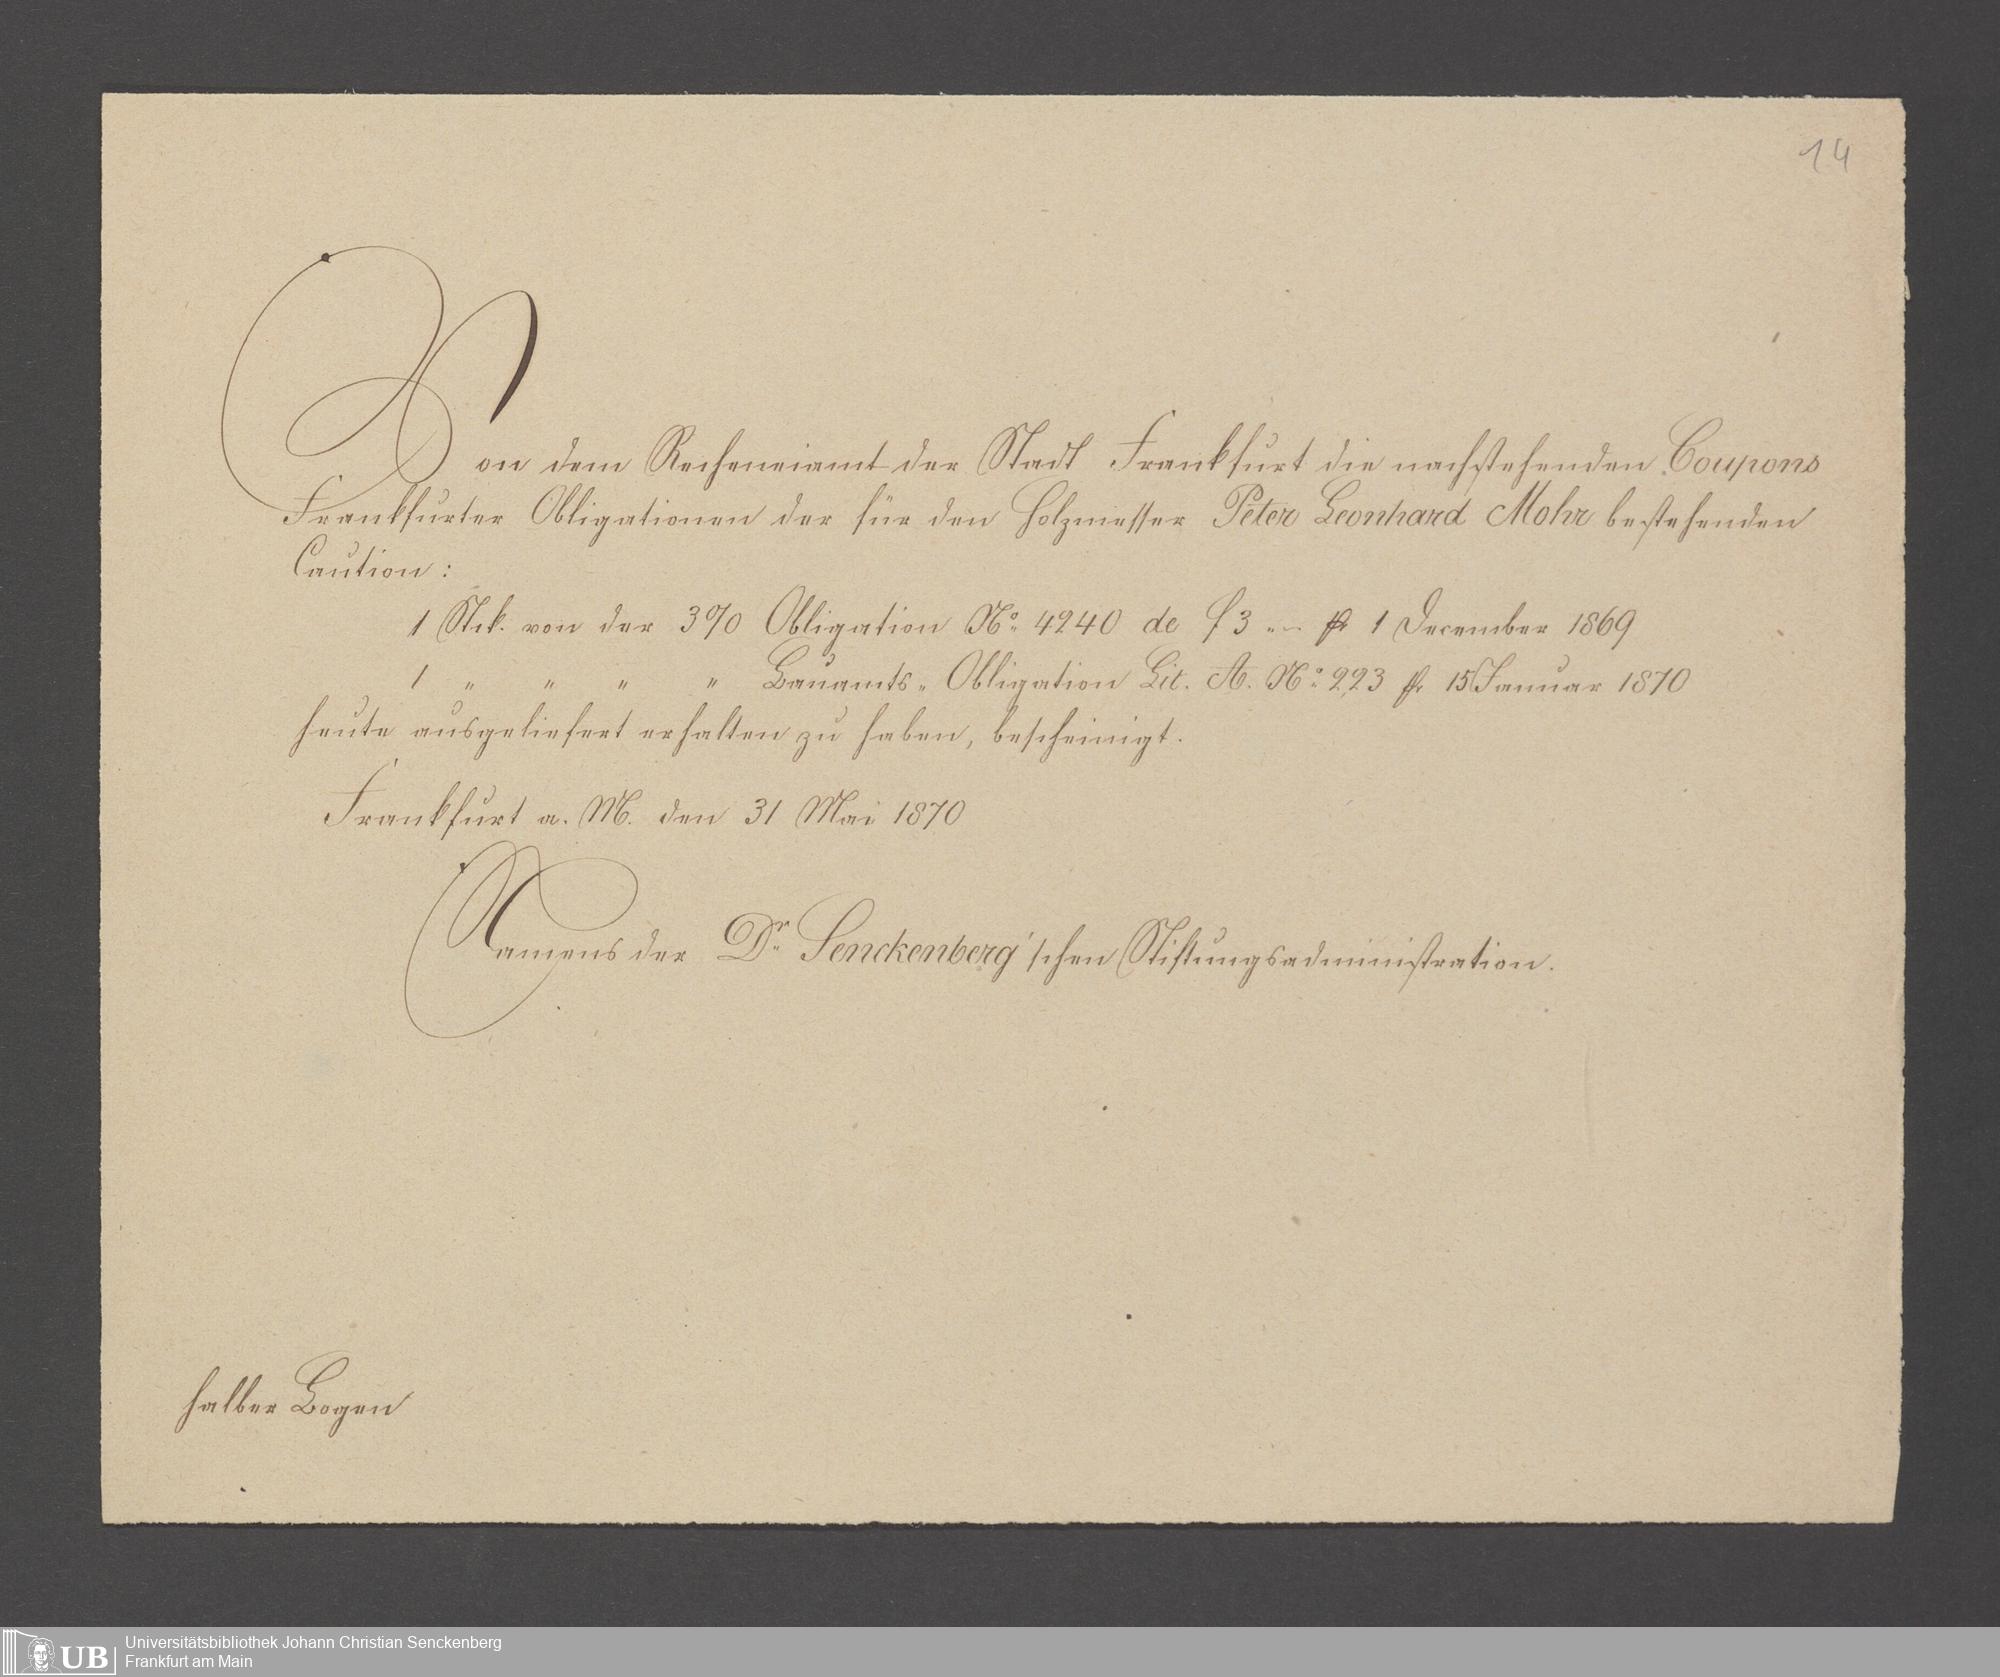 14
Von dem Recheneiamt der Stadt Frankfurt die nachstehenden Coupons
Frankfurter Obligationen der für den Holzmesser Peter Leonhard Mohr bestehenden
Caution:
1 Stck. von der 3% Obligation No. 4240 de f 3 „ – pr 1 December 1869
1 „ „ „ „ Bauamts-Obligation Lit. A. No. 223 pr 15 Januar 1870
heute ausgeliefert erhalten zu haben, bescheinigt.
Frankfurt a. M. den 31 Mai 1870
Namens der Dr. Senckenberg'schen Stiftungsadministration.
halber Bogen
UB
Universitätsbibliothek Johann Christian Senckenberg
Frankfurt am Main